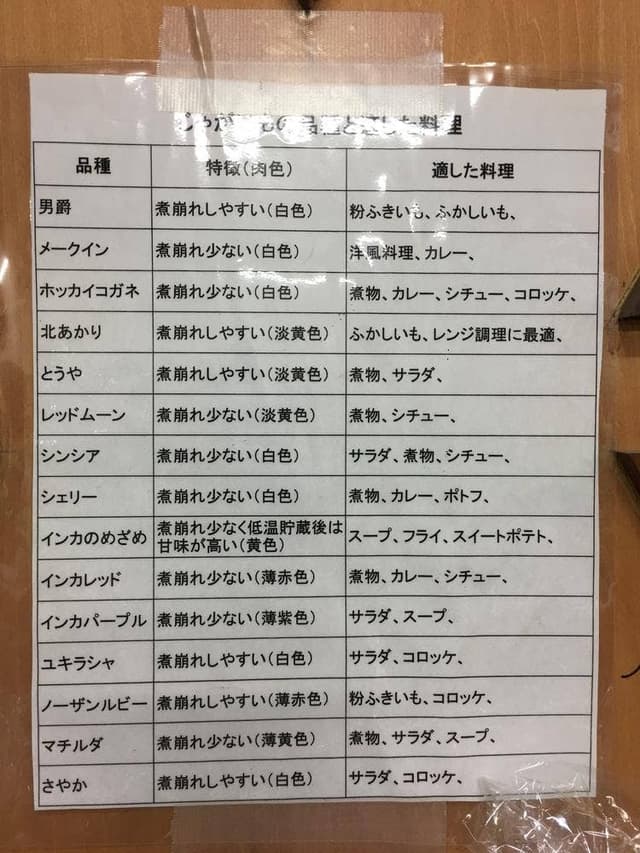 じゃがいもの品種と適した料理
品種 特徴(肉色) 適した料理
男爵 煮崩れしやすい(白色) 粉ふきいも、ふかしいも、
メークイン 煮崩れ少ない(白色) 洋風料理、カレー、
ホッカイコガネ 煮崩れ少ない(白色) 煮物、カレー、シチュー、コロッケ、
北あかり 煮崩れしやすい(淡黄色) ふかしいも、レンジ調理に最適、
とうや 煮崩れしやすい(淡黄色) 煮物、サラダ、
レッドムーン 煮崩れ少ない(淡黄色) 煮物、シチュー、
シンシア 煮崩れ少ない(白色) サラダ、煮物、シチュー、
シェリー 煮崩れ少ない(白色) 煮物、カレー、ポトフ、
インカのめざめ 煮崩れ少なく低温貯蔵後は
甘味が高い(黄色) スープ、フライ、スイートポテト、
インカレッド 煮崩れ少ない(薄赤色) 煮物、カレー、シチュー、
インカパープル 煮崩れ少ない(薄紫色) サラダ、スープ、
ユキラシャ 煮崩れしやすい(白色) サラダ、コロッケ、
ノーザンルビー 煮崩れしやすい(薄赤色) 粉ふきいも、コロッケ、
マチルダ 煮崩れ少ない(薄黄色) 煮物、サラダ、スープ、
さやか 煮崩れしやすい(白色) サラダ、コロッケ、